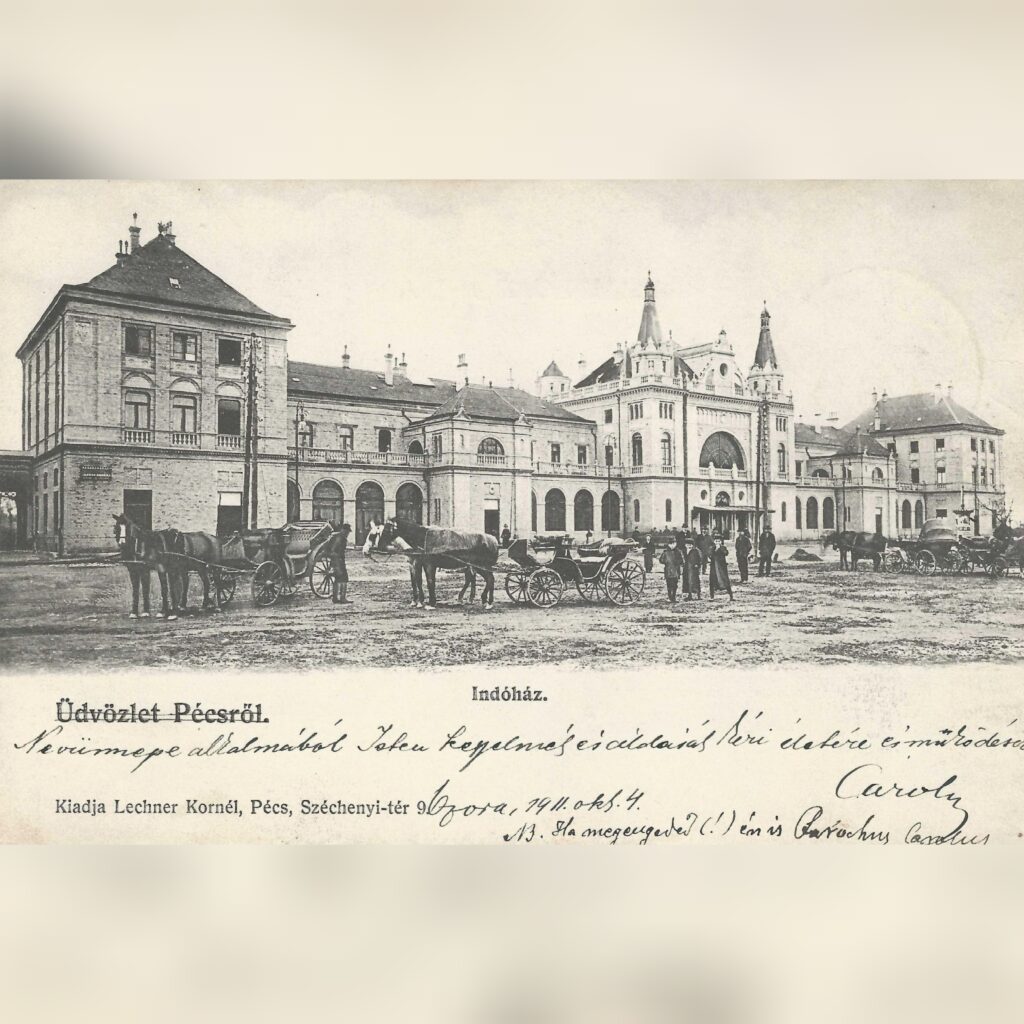 Indóház.
Üdvözlet Pécsről.
Nevünnepe alkalmából Isten kegyelmét és áldását kéri életére és működésére
Caroly
Kiadja Lechner Kornél, Pécs, Széchenyi-tér 9.
Ozora, 1911. okt. 4.
NB. Ha megengeded (!) én is Parochus Carolus